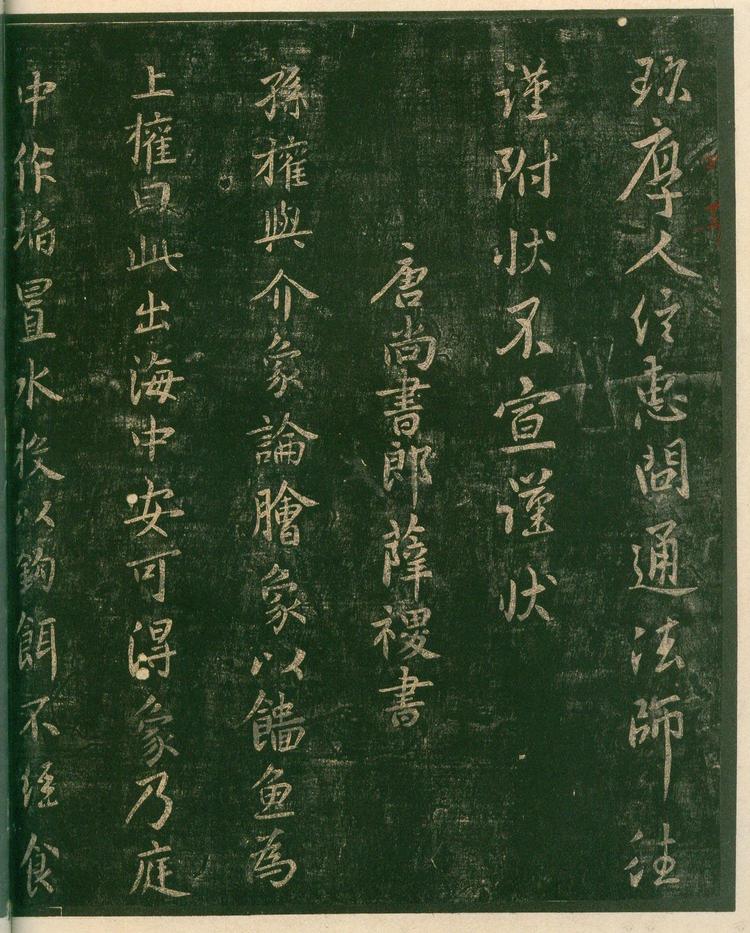 珎厚人信惠問通法師往
謹附状不宣謹状
唐尚書郎薛稷書
孫權與介象論膾象以鱃魚為
上權曰此出海中安可得象乃庭
中作埳置水投以鈎餌不經食